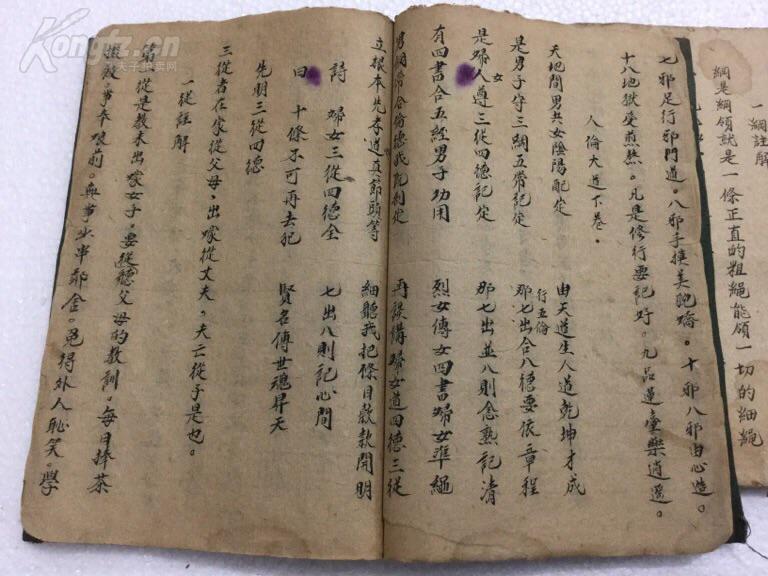 七邪足行邪門道。八邪手摟美肥嬌。十邪八邪由心造。
十八地獄受煎熬。凡是修行要記好。九品蓮臺樂逍遥。
人倫大道下卷。
天地間男共女陰陽配定 由天道生人道乾坤才成
是男子守三綱五常記定 行五倫那七出合八德要依章程
是婦女人尊三從四德記定 那七出並八則念熟記清
有四書合五經男子功用 烈女傳女四書婦女準繩
男綱常合倫德我既制定 再説講婦女道四德三從
立根本先孝道貞節頭等 細聽我把條目款款開明
詩 婦女三從四德全 七出八則記心間
曰 十條不可再去犯 賢名傳世魂昇天
先明三從四德
三從者在家從父母,出嫁從丈夫,夫亡從子是也。
一從註解
第一從是教未出嫁女子,要從聽父母的教訓。每日捧茶
飯。事奉爺前。無事少串鄰舍。免得外人恥笑。學
一綱註解
綱是綱領就是一條正直的粗繩能領一切的細繩
Kongfz.com